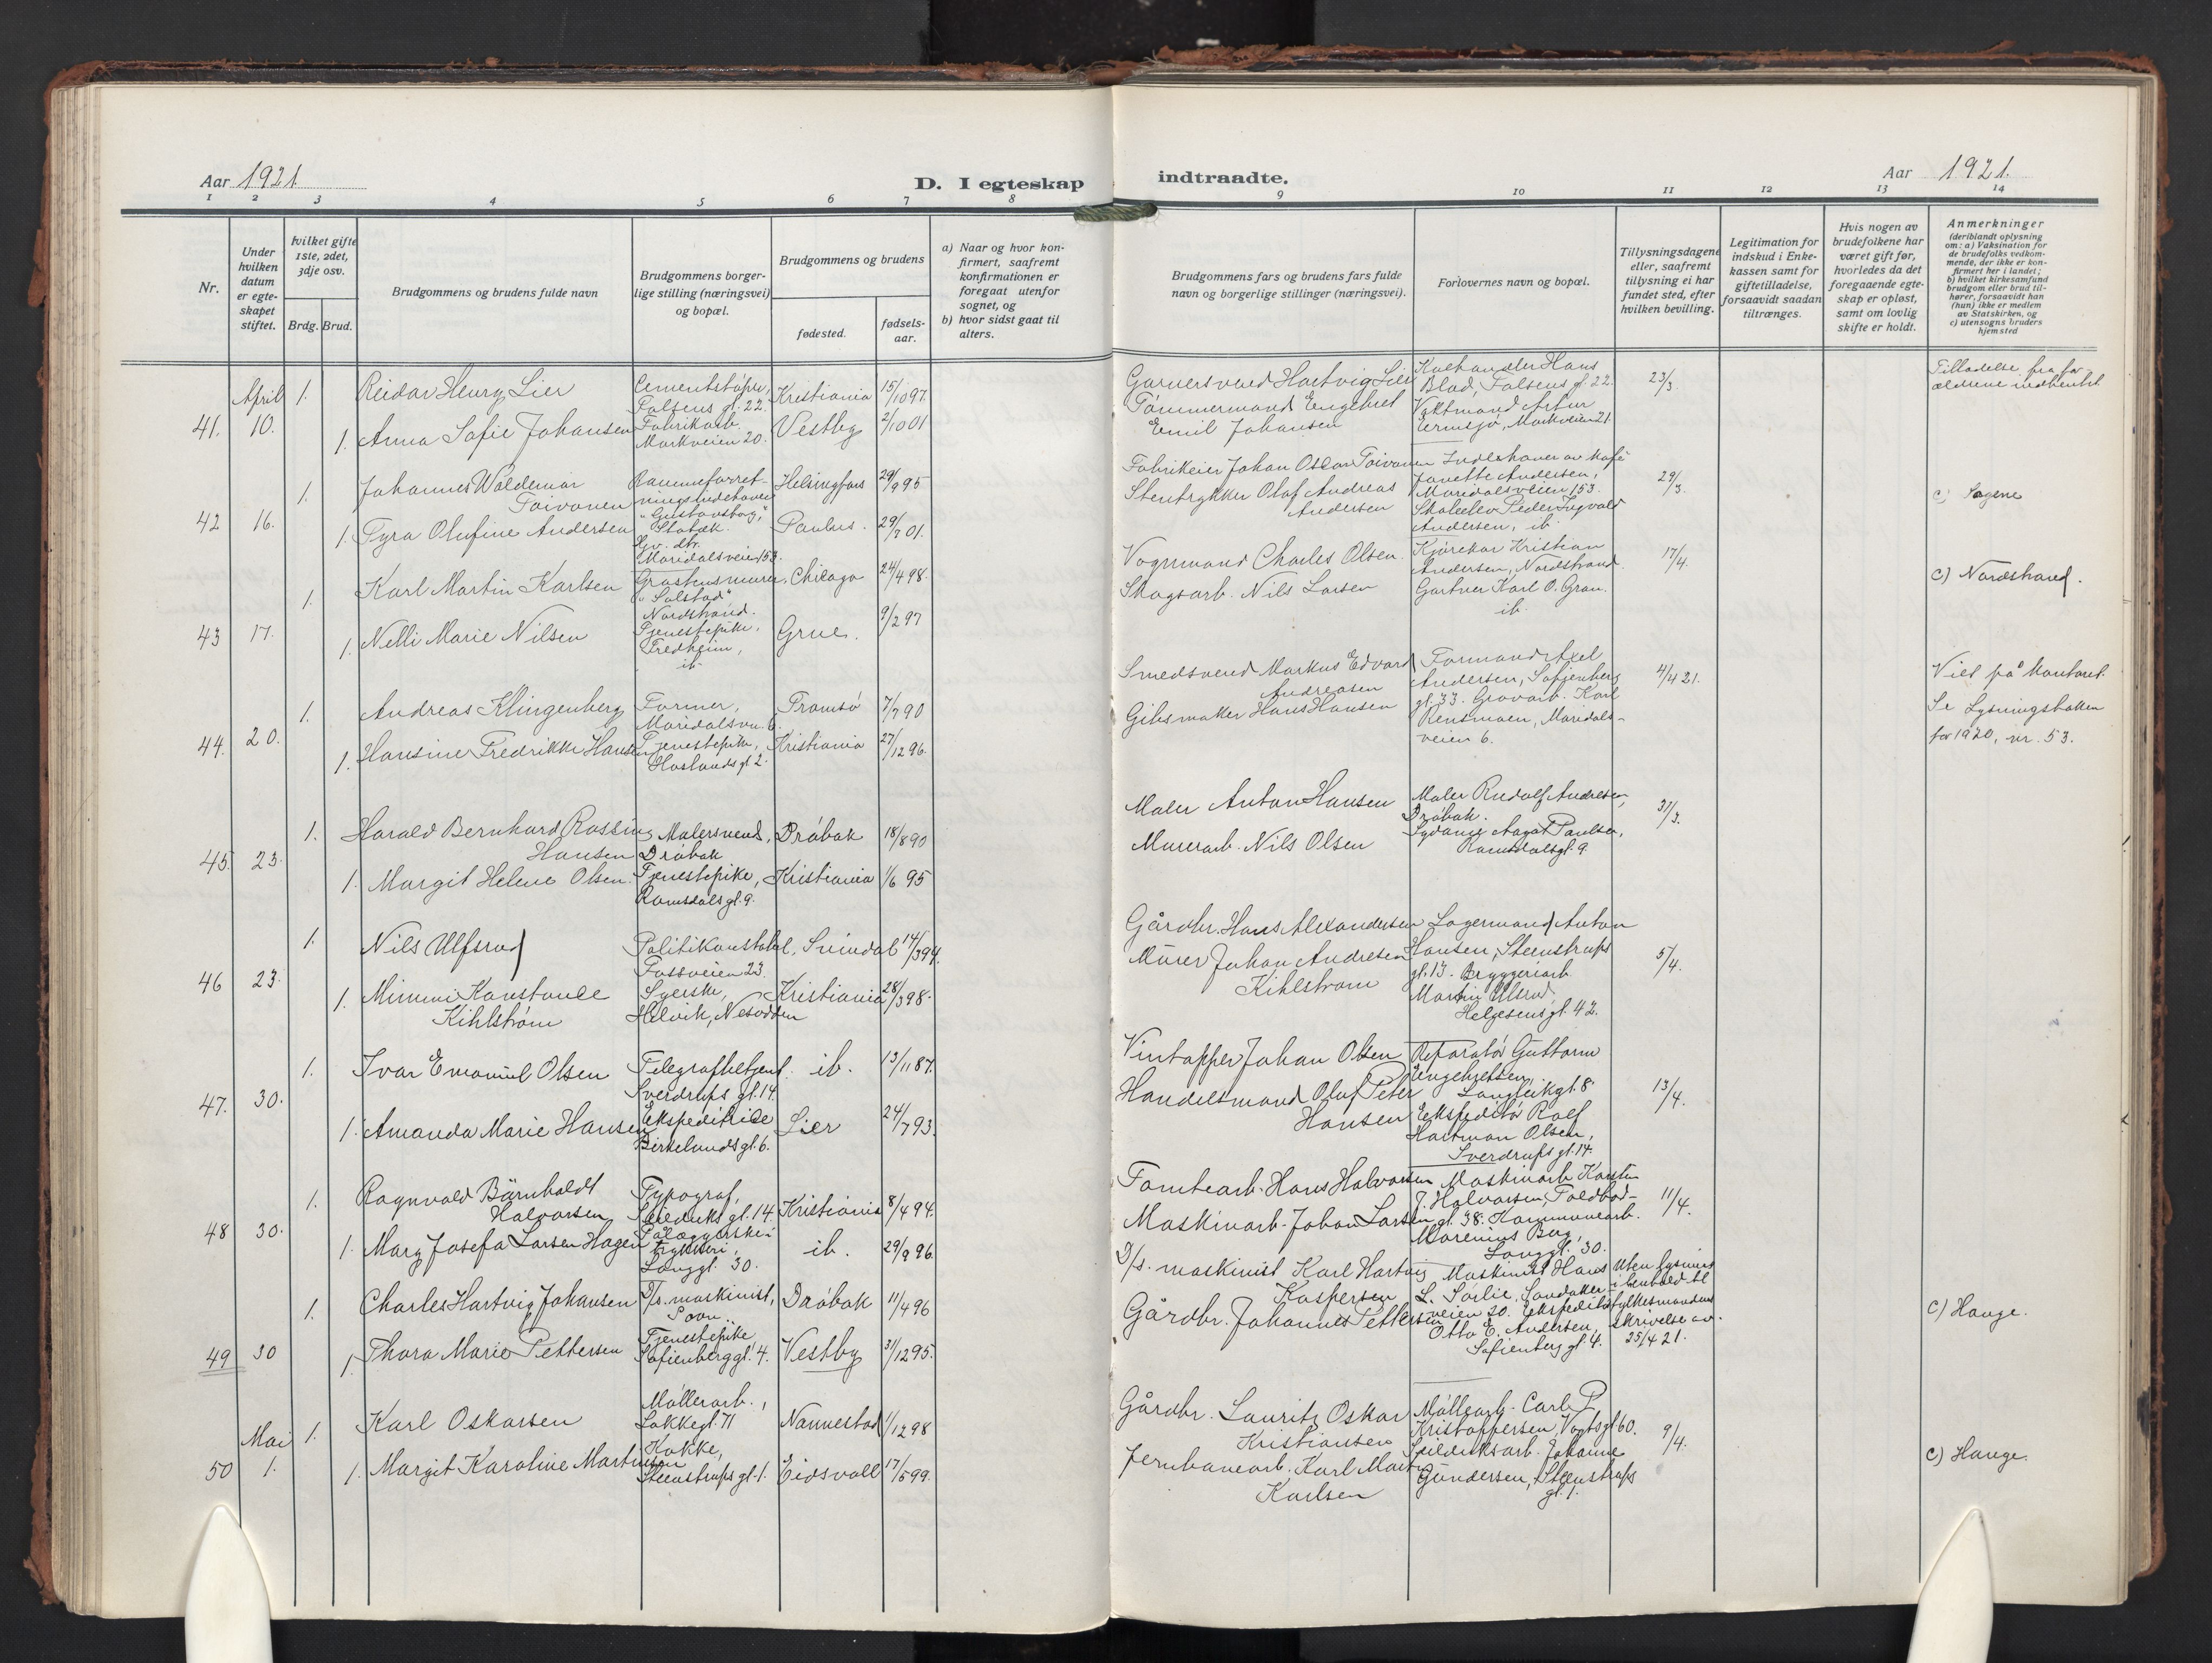 Aar 1921.
D. I egteskap
indtraadte.
Aar 1921.
1 2 3 4 5 6 7 8 9 10 11 12 13 14
Nr.
Under hvilken datum er egteskapet stiftet.
hvilket gifte 1ste, 2det, 3dje osv.
Brdg. Brud.
Brudgommens og brudens fulde navn
Brudgommens borgerlige stilling (næringsvei) og bopæl.
Brudgommens og brudens
fødested.
fødselsaar.
a) Naar og hvor konfirmert, saafremt konfirmationen er foregaat utenfor sognet, og
b) hvor sidst gaat til alters.
Brudgommens fars og brudens fars fulde navn og borgerlige stillinger (næringsvei).
Forlovernes navn og bopæl.
Tillysningsdagene eller, saafremt tillysning ei har fundet sted, efter hvilken bevilling.
Legitimation for indskud i Enkekassen samt for giftetilladelse, forsaavidt saadan tiltrænges.
Hvis nogen av brudefolkene har været gift før, hvorledes da det foregaaende egteskap er opløst, samt om lovlig skifte er holdt.
Anmerkninger (deriblandt oplysning om: a) Vaksination for de brudefolks vedkommende, der ikke er konfirmert her i landet; b) hvilket kirkesamfund brudgom eller brud tilhører, forsaavidt han (hun) ikke er medlem av Statskirken, og c) utensogns bruders hjemsted
41. April 10.
1. Reidar Henry Lier
Cementstøper, Falsens gl. 22. Kristiania 15/10 97.
1. Anna Sofie Johansen
Fabrikarb. Markveien 20. Vestby 2/10 01
Garversvend Hartvig Lier
Tømmermand Engebret
Emil Johansen
Hans
Blad, Falsens gl. 22.
Vaktmand Artur
Ermesjø, Markveien 21.
23/3.
Tilladelse fra for-
ældrene
42 16.
1. Johannes Waldemar
Toivonen
Rammeforret-
ningsindehaver
"Gustavsborg,"
Stabæk.
Helsingfors 29/9 95
1. Tyra Olufine Andersen
Gv. dtr.
Maridalsveien 153.
Paulus. 29/7 01.
Fabrikeier Johan Oscar Toivonen
Stentrykker Olaf Andreas
Andersen
Indehaver av kafé
Janette Andersen,
Maridalsveien 153.
Skoleelev Peder Ingvald
Andersen, ib
29/3.
c) Sagene
43 17.
1. Karl Martin Karlsen
Graastensmurer,
"Solstad"
Nordstrand.
Chicago 24/4 98.
1. Nelli Marie Nilsen
Tjenestepike,
Fredheim,
ib
Grue. 9/2 97
Vognmand Charles Olsen.
Skogsarb. Nils Larsen
Kjørekar Kristian
Andersen, Nordstrand.
Gartner Karl O. Gran.
ib.
17/4.
c) Nordstrand.
44. 20.
1. Andreas Klingenberg
Former,
Maridalsvn. 6.
Tromsø 7/7 90
1. Hansine Fredrikke Hansen
Tjenestepike,
Haslands gl. 2.
Kristiania 27/12 96.
Smedsvend Markus Edvard
Andreasen
Gibsmaker Hans Hansen
Formand Axel
Andersen, Sofienberg
gl. 33. Grovarb. Karl
Rensmoen, Maridals-
veien 6.
4/4 21.
Viet på kontoret.
Se Lysningsboken
for 1920, nr. 53.
45. 23.
1. Harald Bernhard Rossing
Hansen
Malersvend,
Drøbak
Drøbak 18/8 90
1. Margit Helene Olsen.
Tjenestepike,
Ramsdals gl. 9.
Kristiania 1/6 95
Maler Anton Hansen
Murerarb. Nils Olsen
Maler Rudolf Andresen,
Drøbak.
Sydame Aagot Paulsen,
Ramsdals gl. 9.
31/3.
46 23.
1. Nils Ulfsrud
Politikonstabel,
Fossveien 23.
Svindal 14/3 94.
1. Mimmi Konstance
Kihlstrøm
Syerske,
Helvik, Nesodden
Kristiania 28/3 98.
Gårdbr. Hans Alexandersen
Murer Johan Andresen
Kihlstrøm
Lagermand Anton
Hansen, Steenstrups
gl. 13. Bryggeriarb
Martin Ulsrud,
Helgesens gl. 42.
5/4.
47. 30.
1. Ivar Emanuel Olsen
Telegrafbetjent.
Sverdrups gl. 14.
ib. 13/11 87.
1. Amanda Marie Hansen
Ekspeditrice
Birkelunds gl. 6.
Lier 24/7 93.
Vintapper Johan Olsen
Handelsmand Olaf Peter
Hansen
Reparatør Guttorm
Engebretsen,
Langleikgt. 8.
Ekspeditør Rolf
Hartman Olsen,
Sverdrups gl. 14.
13/4.
48 30.
1. Ragnvald Bärnholdt
Halvorsen
Typograf,
Seilduks gl. 14.
Kristiania 8/4 94.
1. Mary Josefa Larsen Hagen
Pålæggerske i
trykkeri,
Langgl. 30.
ib. 29/9 96.
Tomtearb. Hans Halvorsen
Maskinarb. Johan Larsen
Maskinarb. Karsten
J. Halvorsen, Toldbod-
gl. 38. Kommunearb.
Marenius Berg,
Langgl. 30.
11/4.
49 30
1. Charles Hartvig Johansen
D/s. maskinist,
Drøbak 11/4 96
1. Thora Marie Pettersen
Tjenestepike
Sofienberggl. 4.
Vestby 31/12 95.
D/s. maskinist Karl Hartvig
Kaspersen
Gårdbr. Johannes Pettersen
Maskinist Hans
L. Sørlie, Sandaker-
veien 20. Ekspeditør
Otto E. Andersen,
Sofienberg gl. 4.
Uten lysning
i henhold til
fylkesmandens
skrivelse av
25/4 21.
c) Hauge.
50 Mai 1.
1. Karl Oskarsen
Møllerarb.,
Lakkegl. 71
Nannestad 1/12 98
1. Margit Karoline Martinsen
Kokke,
Steenstrups gl. 1.
Eidsvoll 17/5 99.
Gårdbr. Lauritz Oskar
Kristiansen
Jernbanearb. Karl Martin
Karlsen
Møllearb. Carl P.
Kristoffersen, Vogtsgl 60.
Seilduksarb. Johanne
Gundersen, Steenstrups
gl. 1.
9/4.
c) Hauge.